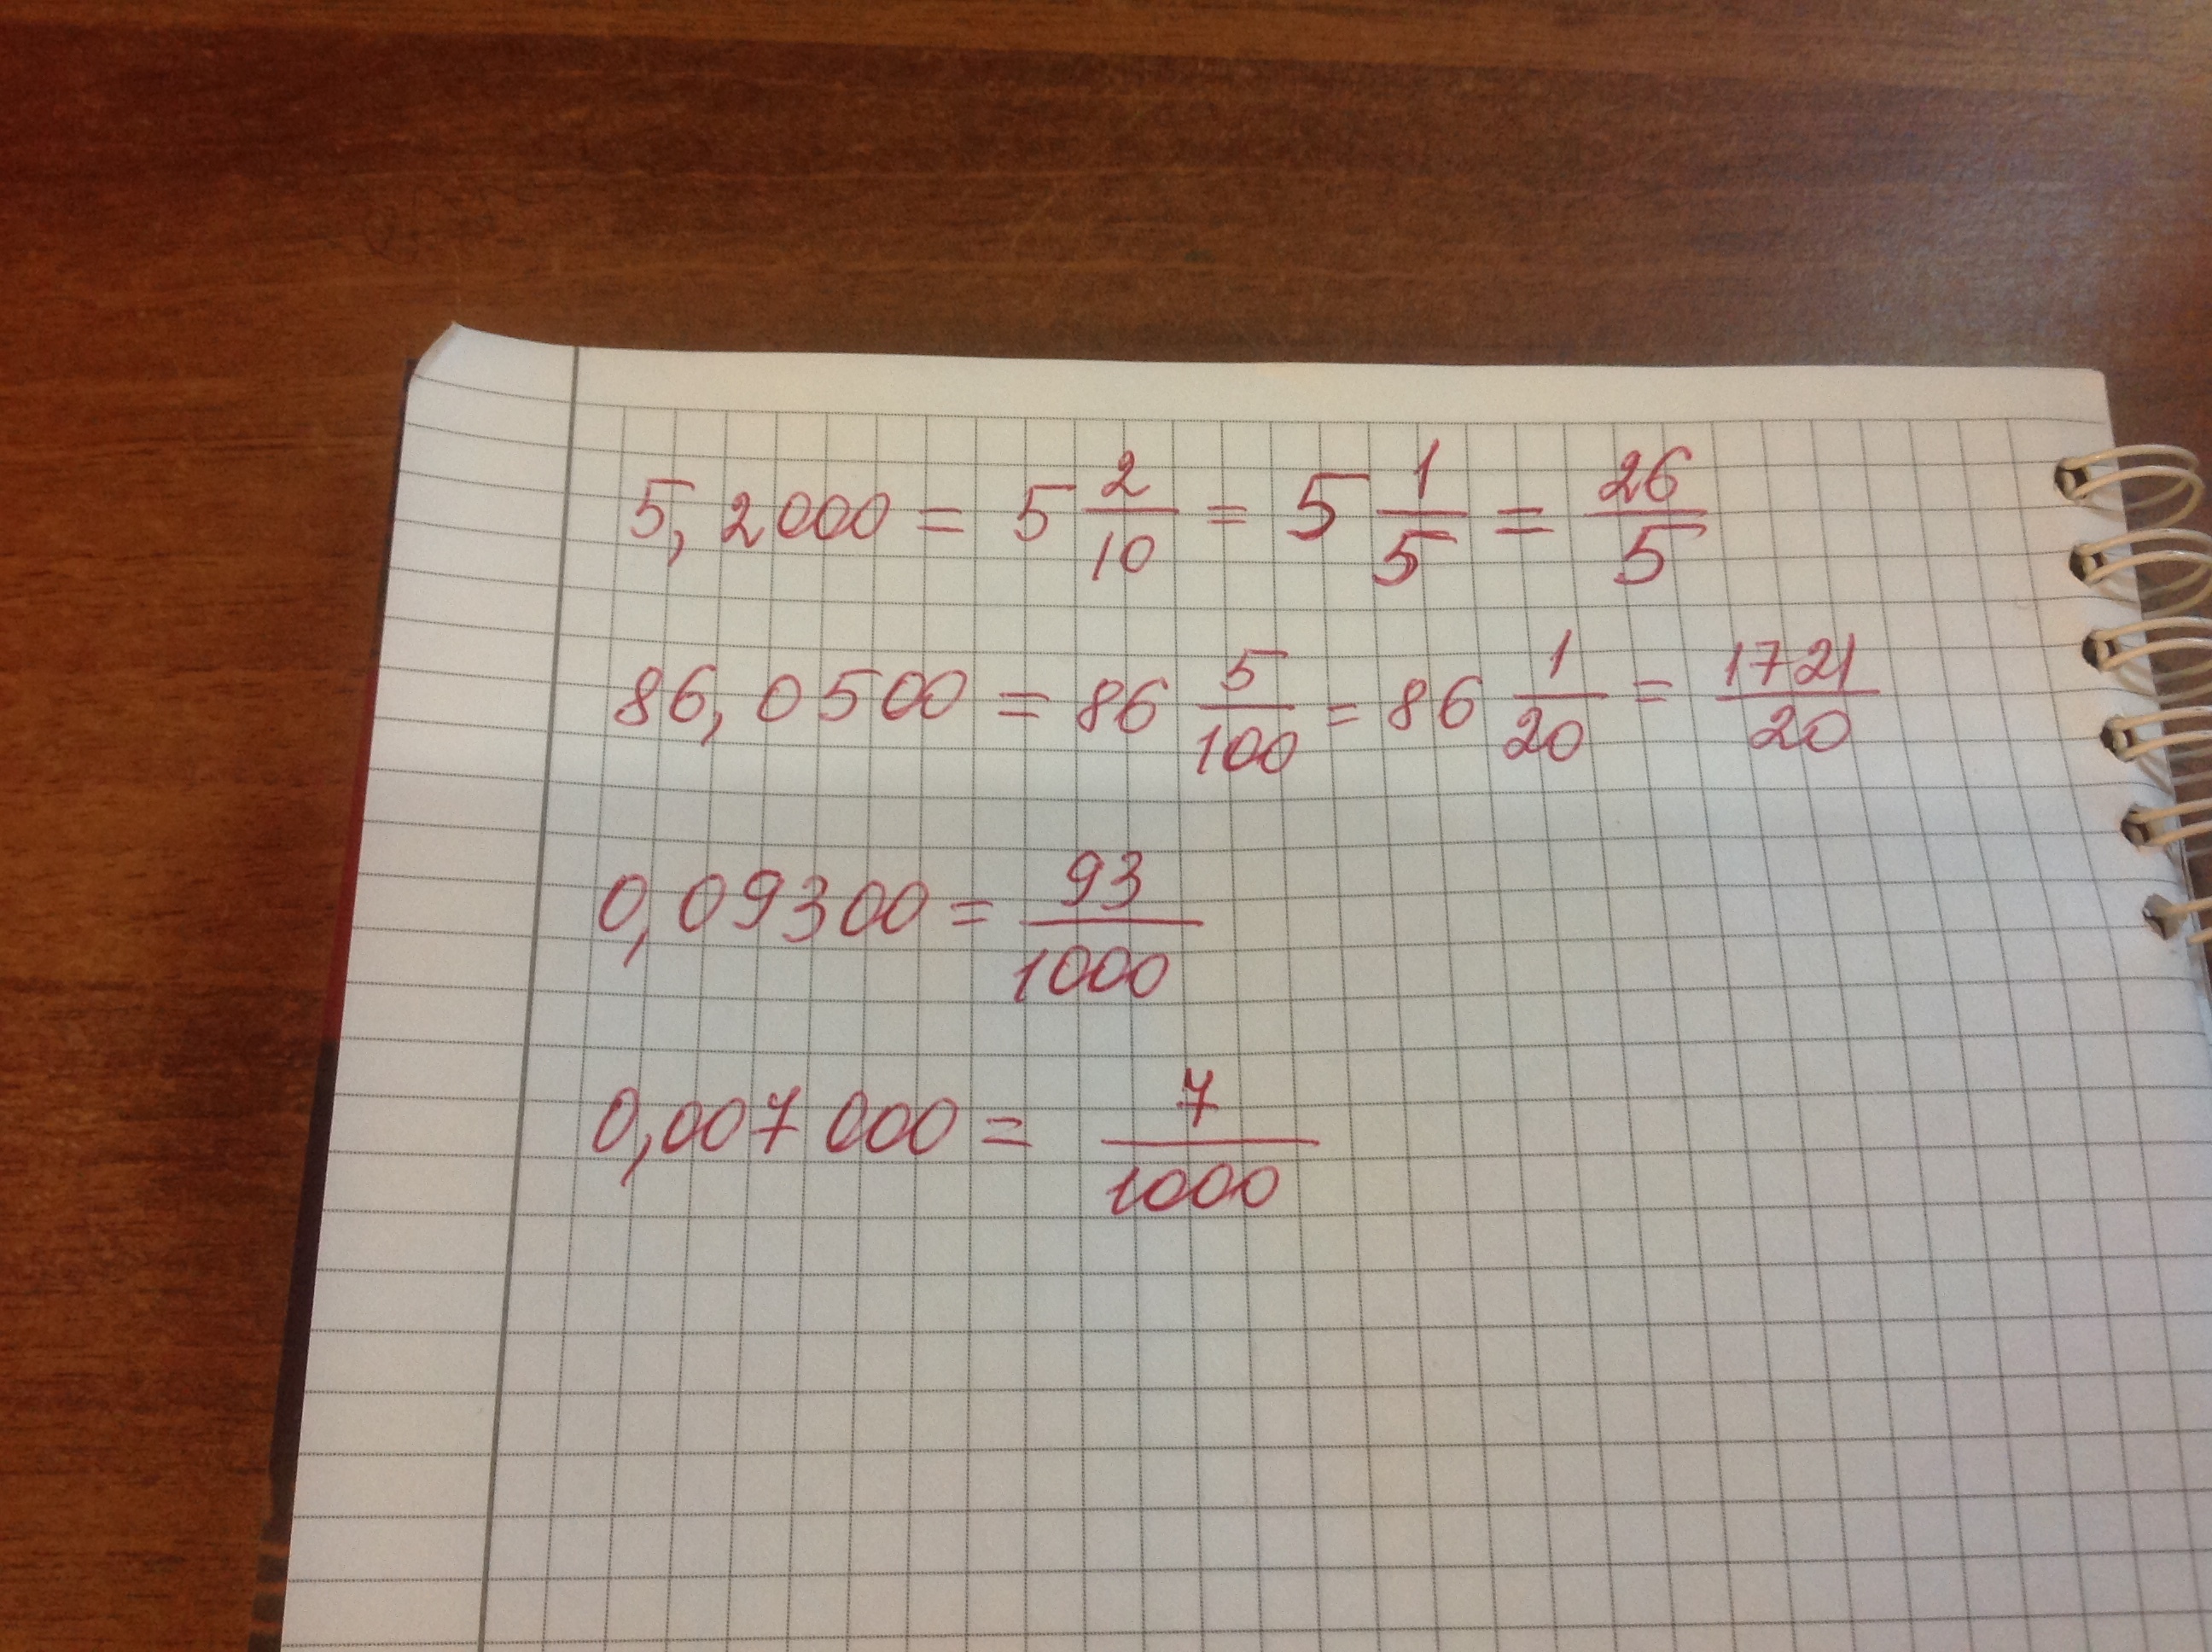 5,2000 = 5 2/10 = 5 1/5 = 26/5
86,0500 = 86 5/100 = 86 1/20 = 1721/20
0,09300 = 93/1000
0,007000 = 7/1000